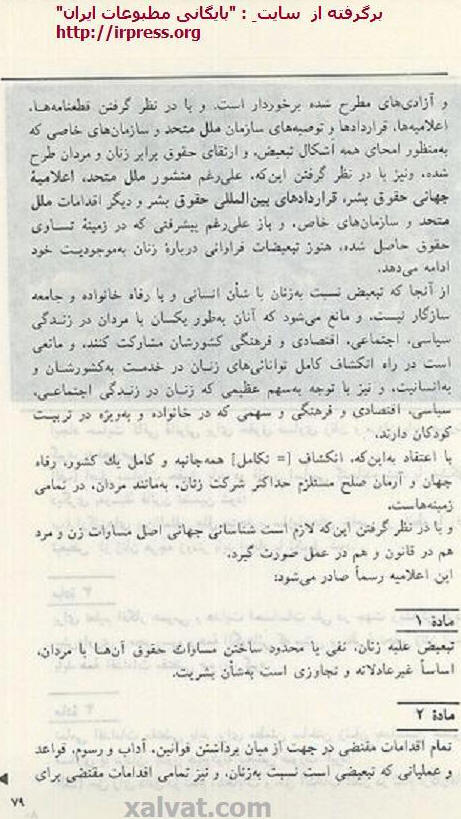 برگرفته از سایت : "بایگانی مطبوعات ایران"
http://irpress.org
و آزادی‌های مطرح شده برخوردار است. و با در نظر گرفتن قطعنامه‌ها،
اعلامیه‌ها، قراردادها و توصیه‌های سازمان ملل متحد و سازمان‌های خاصی که
به‌منظور امحای همه اشکال تبعیض، و ارتقای حقوق برابر زنان و مردان طرح
شده، ونیز با در نظر گرفتن این‌که، علی‌رغم منشور ملل متحد، اعلامیهٔ
جهانی حقوق بشر، قراردادهای بین‌المللی حقوق بشر و دیگر اقدامات ملل
متحد و سازمان‌های خاص، و باز علی‌رغم پیشرفتی که در زمینهٔ تساوی
حقوق حاصل شده، هنوز تبعیضات فراوانی دربارهٔ زنان به‌موجودیت خود
ادامه می‌دهد.
از آنجا که تبعیض نسبت به‌زنان با شأن انسانی و با رفاه خانواده و جامعه
سازگار نیست، و مانع می‌شود که آنان به‌طور یکسان با مردان در زندگی
سیاسی، اجتماعی، اقتصادی و فرهنگی کشورشان مشارکت کنند، و مانعی
است در راه انکشاف کامل توانائی‌های زنان در خدمت به‌کشورشان و
به‌انسانیت، و نیز با توجه به‌سهم عظیمی که زنان در زندگی اجتماعی،
سیاسی، اقتصادی و فرهنگی و سهمی که در خانواده و به‌ویژه در تربیت
کودکان دارند،
با اعتقاد به‌این‌که، انکشاف [= تکامل] همه‌جانبه و کامل یك کشور، رفاه
جهان و آرمان صلح مستلزم حداکثر شرکت زنان، به‌مانند مردان، در تمامی
زمینه‌هاست،
و با در نظر گرفتن این‌که لازم است شناسائی جهانی اصل مساوات زن و مرد
هم در قانون و هم در عمل صورت گیرد،
این اعلامیه رسماً صادر می‌شود:
مادهٔ ۱
تبعیض علیه زنان، نفی یا محدود ساختن مساوات حقوق آن‌ها با مردان،
اساساً غیرعادلانه و تجاوزی است به‌شأن بشریت.
مادهٔ ۲
تمام اقدامات مقتضی در جهت از میان برداشتن قوانین، آداب و رسوم، قواعد
و عملیاتی که تبعیضی است نسبت به‌زنان، و نیز تمامی اقدامات مقتضی برای
۷۹
xalvat.com